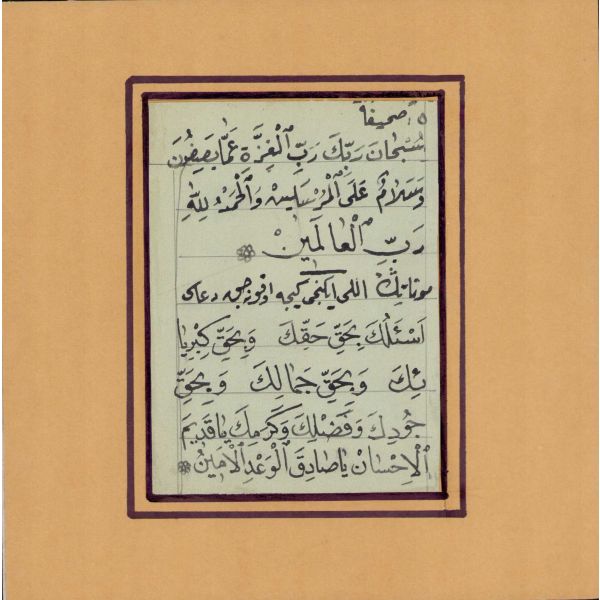 ٥؛ صحيفة
سُبْحَانَ رَبِّكَ رَبِّ الْعِزَّةِ عَمَّا يَصِفُونَ
وَسَلَامٌ عَلَى الْمُرْسَلِينَ وَالْحَمْدُ لِلَّهِ
رَبِّ الْعَالَمِينَ
موتانك اللى ايكنجى كيجه اوقونه جق دعاى
اَسْئَلُكَ بِحَقِّ حَقِّكَ وَبِحَقِّ كِبْرِيَا
ئِكَ وَبِحَقِّ جَمَالِكَ وَبِحَقِّ
جُودِكَ وَفَضْلِكَ وَكَرَمِكَ يَا قَدِيمَ
الْاِحْسَانْ يَا صَادِقَ الْوَعْدِ الْاَمِينُ